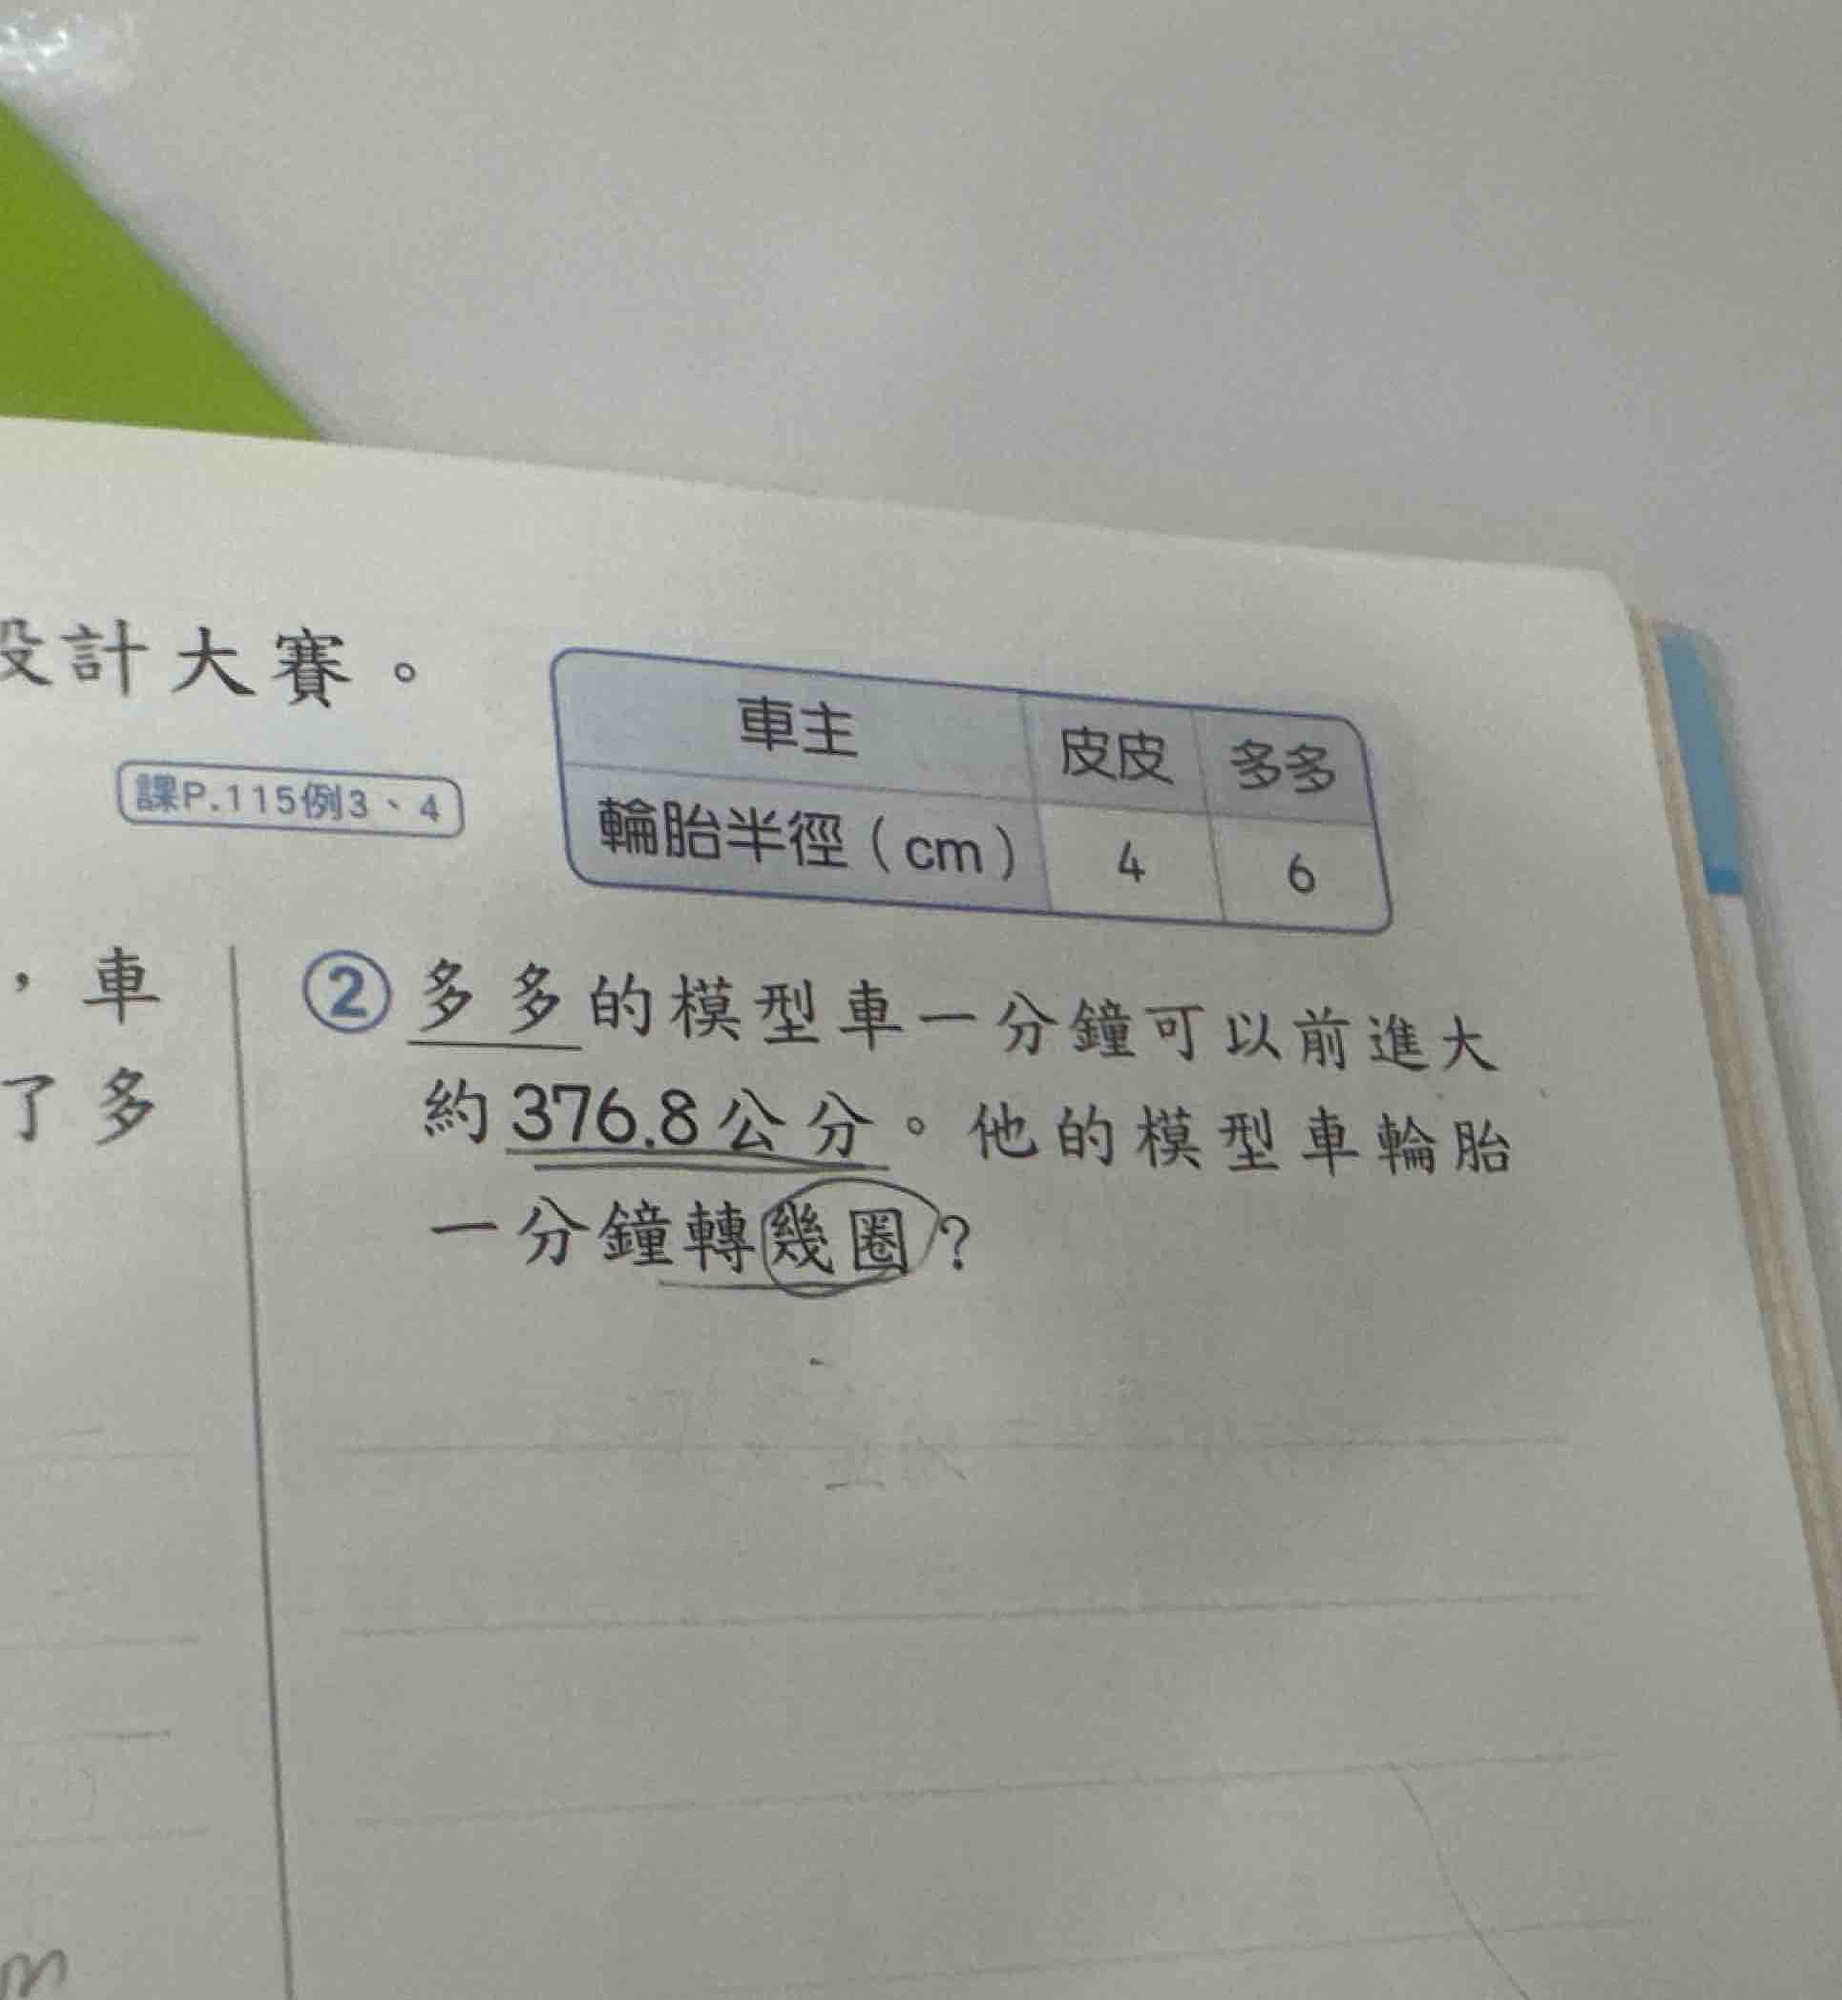 設計大賽。
課P.115例3、4
車主 皮皮 多多
輪胎半徑(cm) 4 6
，車
了多
② 多多的模型車一分鐘可以前進大
約376.8公分。他的模型車輪胎
一分鐘轉幾圈？
m